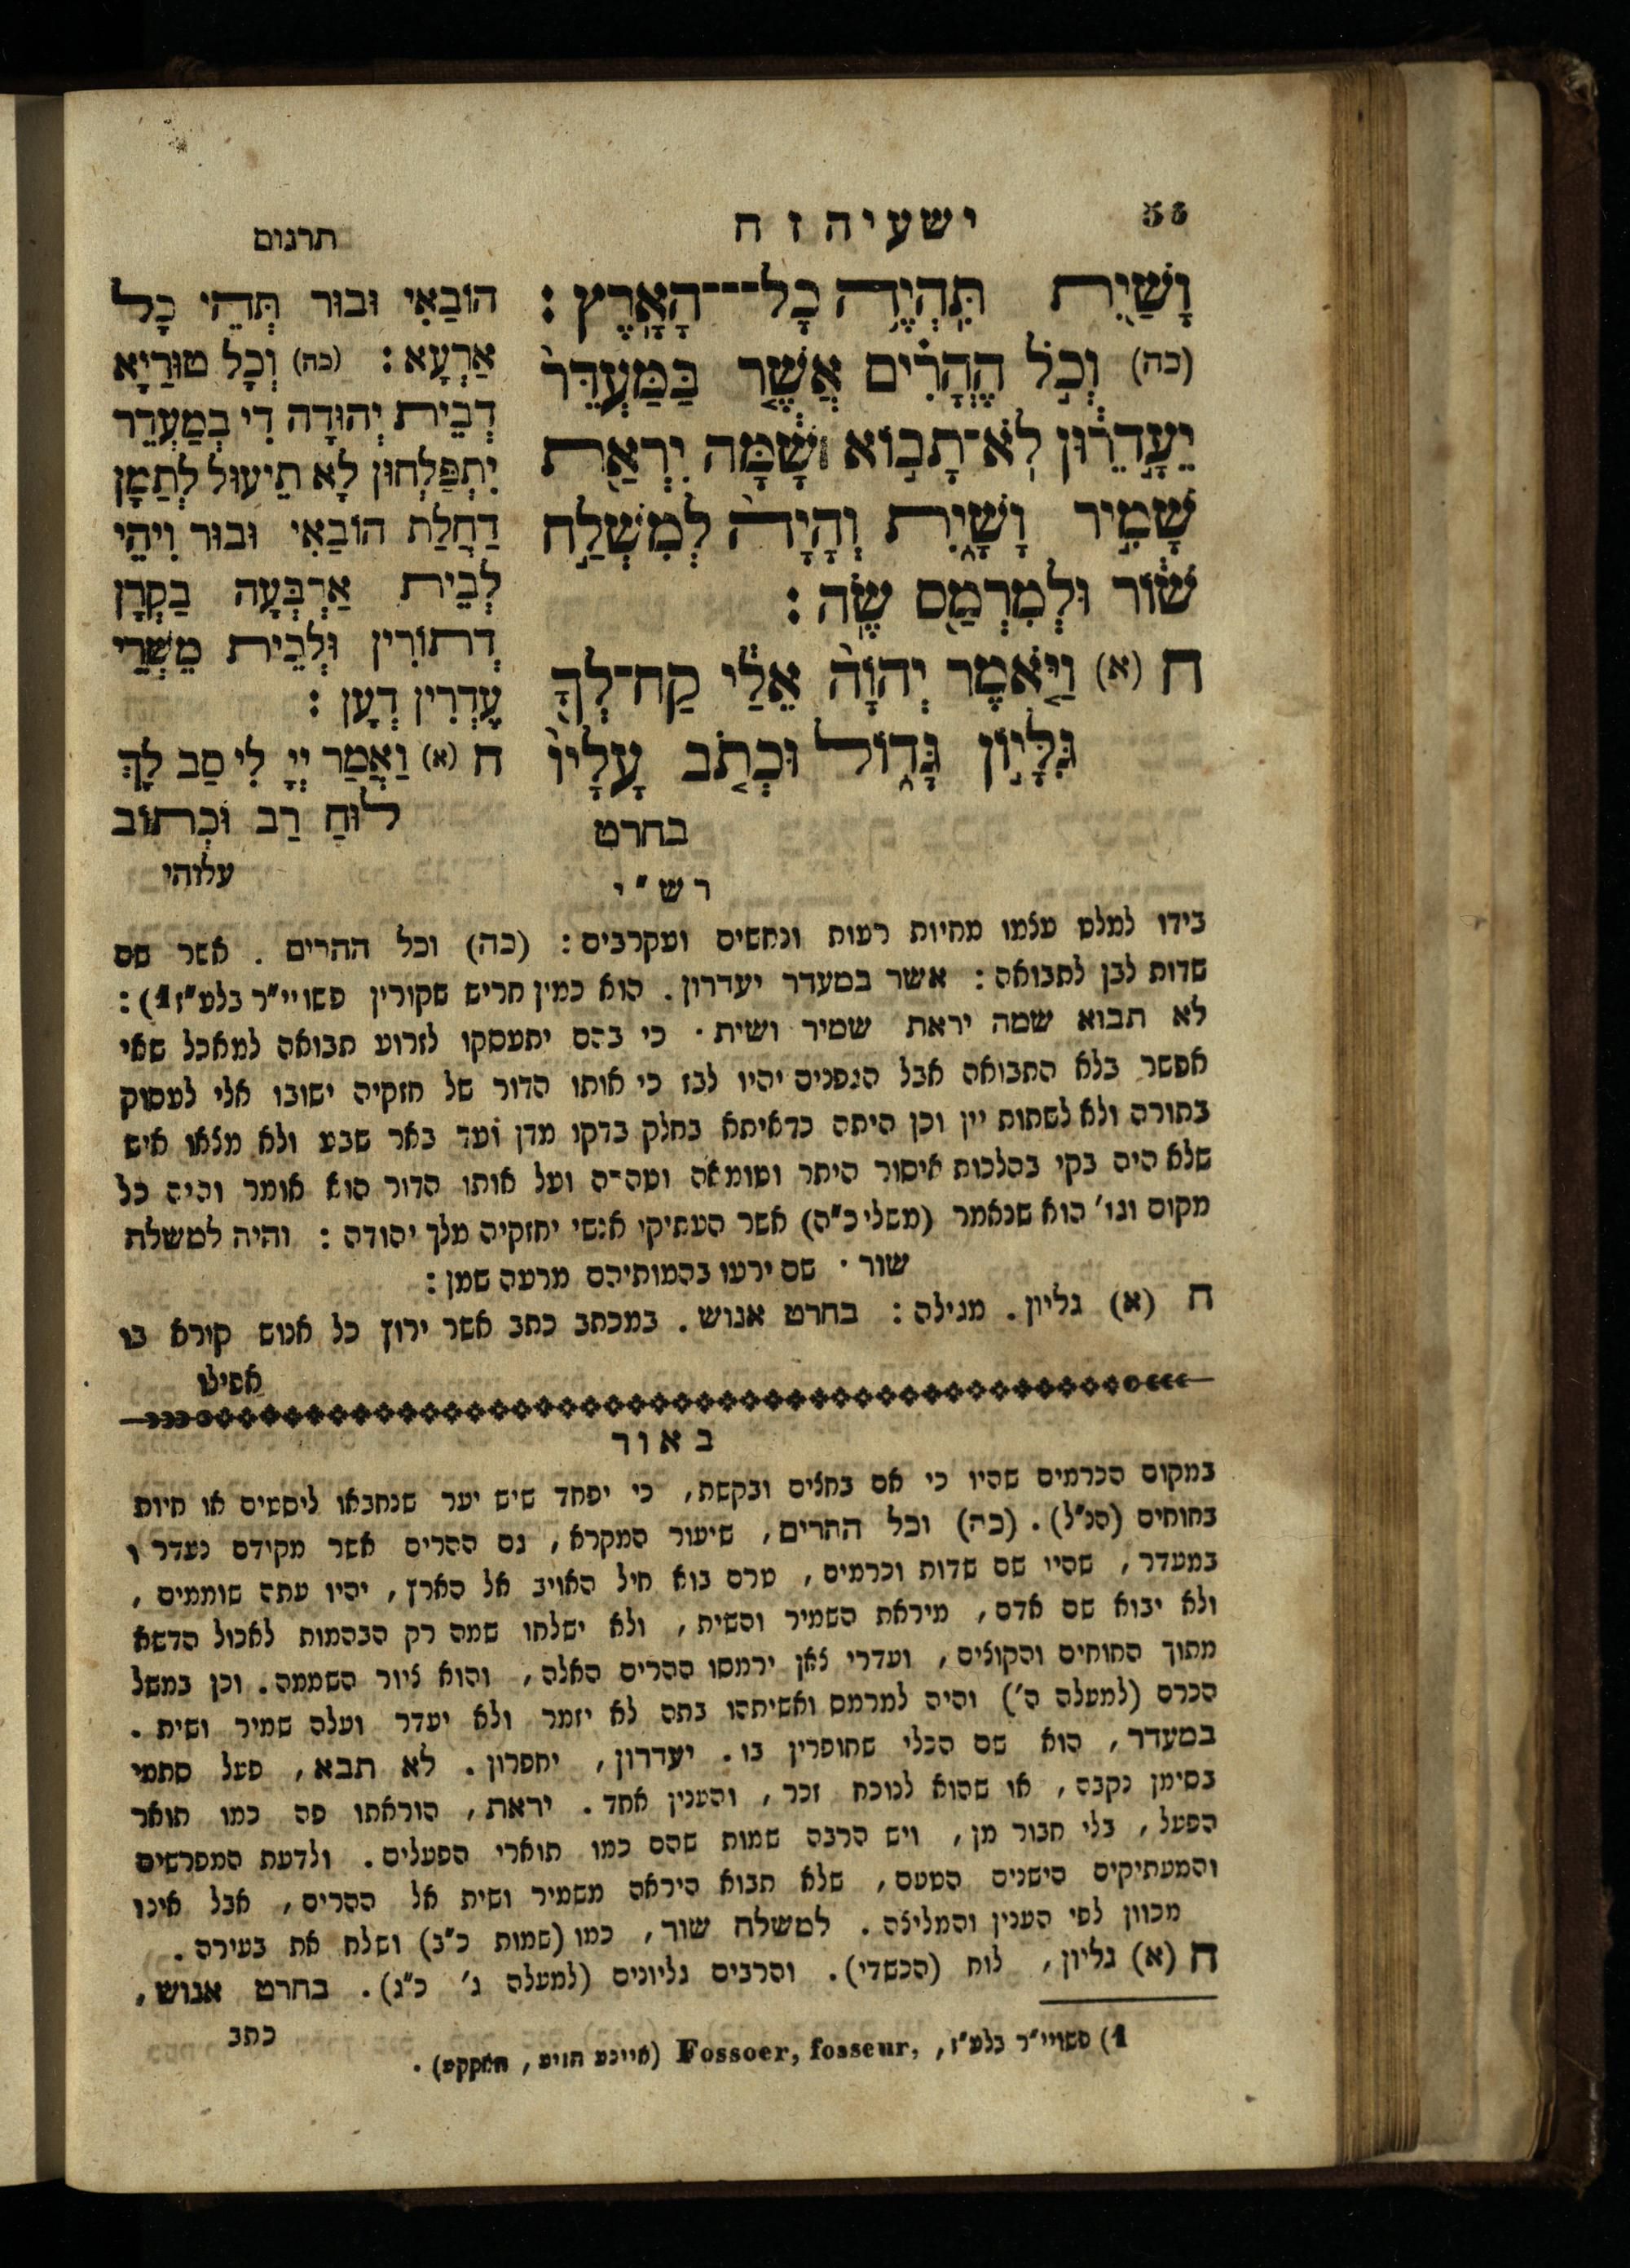 58
ישעיה ז ח
תרגום
וָשַׁ֖יִת תִּֽהְיֶ֥ה כָל־הָאָֽרֶץ :
(כה) וְכֹ֣ל הֶהָרִ֗ים אֲשֶׁ֤ר בַּמַּעְדֵּר֙
יֵעָ֣דֵר֔וּן לֹֽא־תָב֣וֹא שָׁ֔מָּה יִרְאַ֖ת
שָׁמִ֣יר וָשָׁ֑יִת וְהָיָה֙ לְמִשְׁלַ֣ח
שׁ֔וֹר וּלְמִרְמַ֖ס שֶֽׂה :
ח (א) וַיֹּ֤אמֶר יְהוָֹה֙ אֵלַ֔י קַח־לְךָ֖
גִּלָּי֣וֹן גָּד֑וֹל וּכְתֹ֤ב עָלָיו֙
בחרט
הוֹבָאִי וּבוּר תְּהֵי כָל
אַרְעָא : (כה) וְכָל טוּרַיָא
דְבֵית יְהוּדָה דִי בְמַעְדֵר
יִתְפַּלְחוּן לָא תֵיעוּל לְתַמָן
דַחֲלַת הוֹבָאִי וּבוּר וִיהֵי
לְבֵית אַרְבְּעָה בַקְרָן
דְתוֹרִין וּלְבֵית מֵשְׁרֵי
עָדְרִין דְעָן :
ח (א) וַאֲמַר יְיָ לִי סַב לָךְ
לוּחַ רַב וּכְתוֹב
עלוהי
רש״י
בידו למלט עצמו מחיות רעות ונחשים ועקרבים : (כה) וכל ההרים . אשר שם
שדות לבן לתבואה : אשר במעדר יעדרון . הוא כמין חריש שקורין פשויי״ר בלע״ז 1) :
לא תבוא שמה יראת שמיר ושית . כי בהם יתעסקו לזרוע תבואה למאכל שאי
אפשר בלא התבואה אבל הגפנים יהיו לבז כי אותו הדור של חזקיה ישובו אלי לעסוק
בתורה ולא לשתות יין וכן היתה כדאיתא בחלק בדקו מדן ועד באר שבע ולא מצאו איש
שלא היה בקי בהלכות איסור היתר וטומאה וטהרה ועל אותו הדור הוא אומר והיה כל
מקום וגו׳ הוא שנאמר (משלי כ״ה) אשר העתיקו אנשי יחזקיה מלך יהודה : והיה למשלח
שור . שם ירעו בהמותיהם מרעה שמן :
ח (א) גליון . מגילה : בחרט אנוש . במכתב כתב אשר ירוץ כל אנוש קורא בו
אפילו
באור
במקום הכרמים שהיו כי אם בחצים ובקשת , כי יפחד שיש יער שנחבאו ליסטים או חיות
בחוחים (הנ״ל) . (כה) וכל ההרים , שיעור המקרא , גם ההרים אשר מקידם נעדרו
במעדר , שהיו שם שדות וכרמים , טרם בוא חיל האויב אל הארץ , יהיו עתה שוממים ,
ולא יבוא שם אדם , מיראת השמיר והשית , ולא ישלחו שמה רק הבהמות לאכול הדשא
מתוך החוחים והקוצים , ועדרי צאן ירמסו ההרים האלה , והוא ציור השממה . וכן במשל
הכרם (למעלה ה׳) והיה למרמס ואשיתהו בתה לא יזמר ולא יעדר ועלה שמיר ושית .
במעדר , הוא שם הכלי שחופרין בו . יעדרון , יחפרון . לא תבא , פעל סתמי
בסימן נקבה , או שהוא לנוכח זכר , והענין אחד . יראת , הוראתו פה כמו תואר
הפעל , בלי חבור מן , ויש הרבה שמות שהם כמו תוארי הפעלים . ולדעת המפרשים
והמעתיקים הישנים הטעם , שלא תבוא היראה משמיר ושית אל ההרים , אבל אינו
מכוון לפי הענין והמליצה . למשלח שור , כמו (שמות כ״ב) ושלח את בעירה .
ח (א) גליון , לוח (הכשדי) . והרבים גליונים (למעלה ג׳ כ״ג) . בחרט אנוש ,
כתב
1) פשויי״ר בלע״ז , Fossoer, fosseur, (איינע הויע , האקקע) .